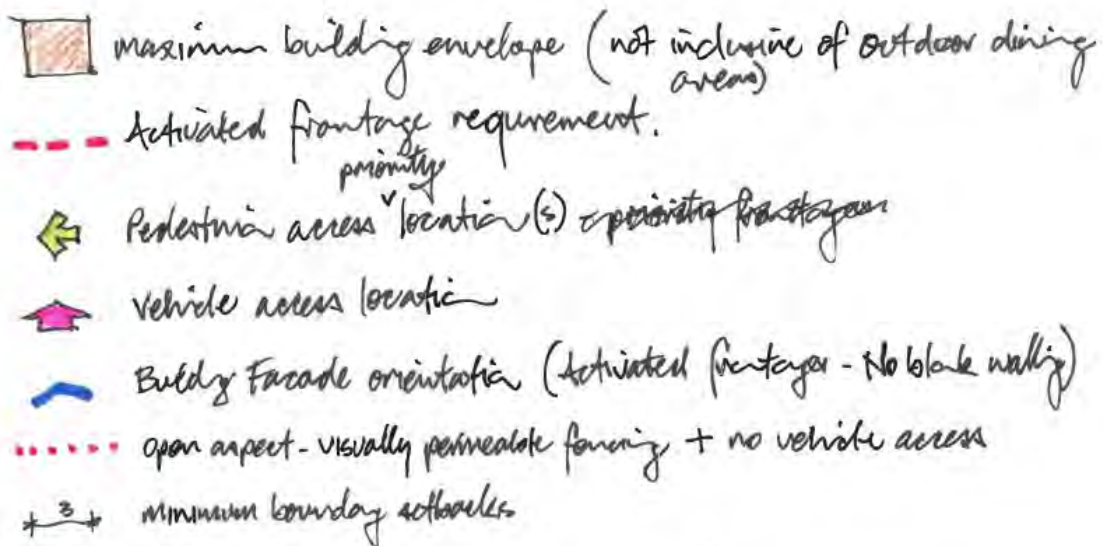 maximum building envelope (not inclusive of outdoor dining
areas)
Activated frontage requirement.
priority
Pedestrian access location(s) - priority frontages
Vehicle access location
Building Facade orientation (Activated frontages - No blank walling)
open aspect - visually permeable fencing + no vehicle access
3 minimum boundary setbacks